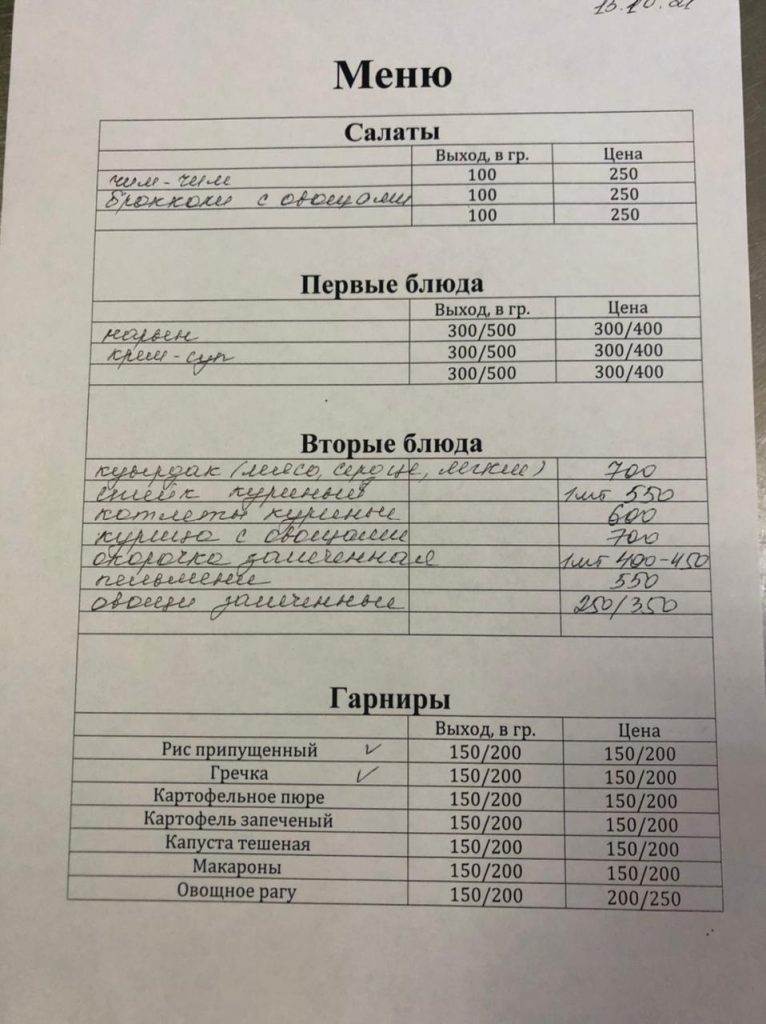 13.10.21
Меню
Салаты
Выход, в гр. Цена
чим-чим 100 250
брокколи с овощами 100 250
100 250
Первые блюда
Выход, в гр. Цена
нарын 300/500 300/400
крем-суп 300/500 300/400
300/500 300/400
Вторые блюда
куырдак (мясо, сердце, легкие) 700
стейк куриный 1шт 550
котлеты куриные 600
курица с овощами 700
окорочка запеченная 1шт 400-450
пельмени 550
овощи запеченные 250/350
Гарниры
Выход, в гр. Цена
Рис припущенный ✓ 150/200 150/200
Гречка ✓ 150/200 150/200
Картофельное пюре 150/200 150/200
Картофель запеченый 150/200 150/200
Капуста тешеная 150/200 150/200
Макароны 150/200 150/200
Овощное рагу 150/200 200/250